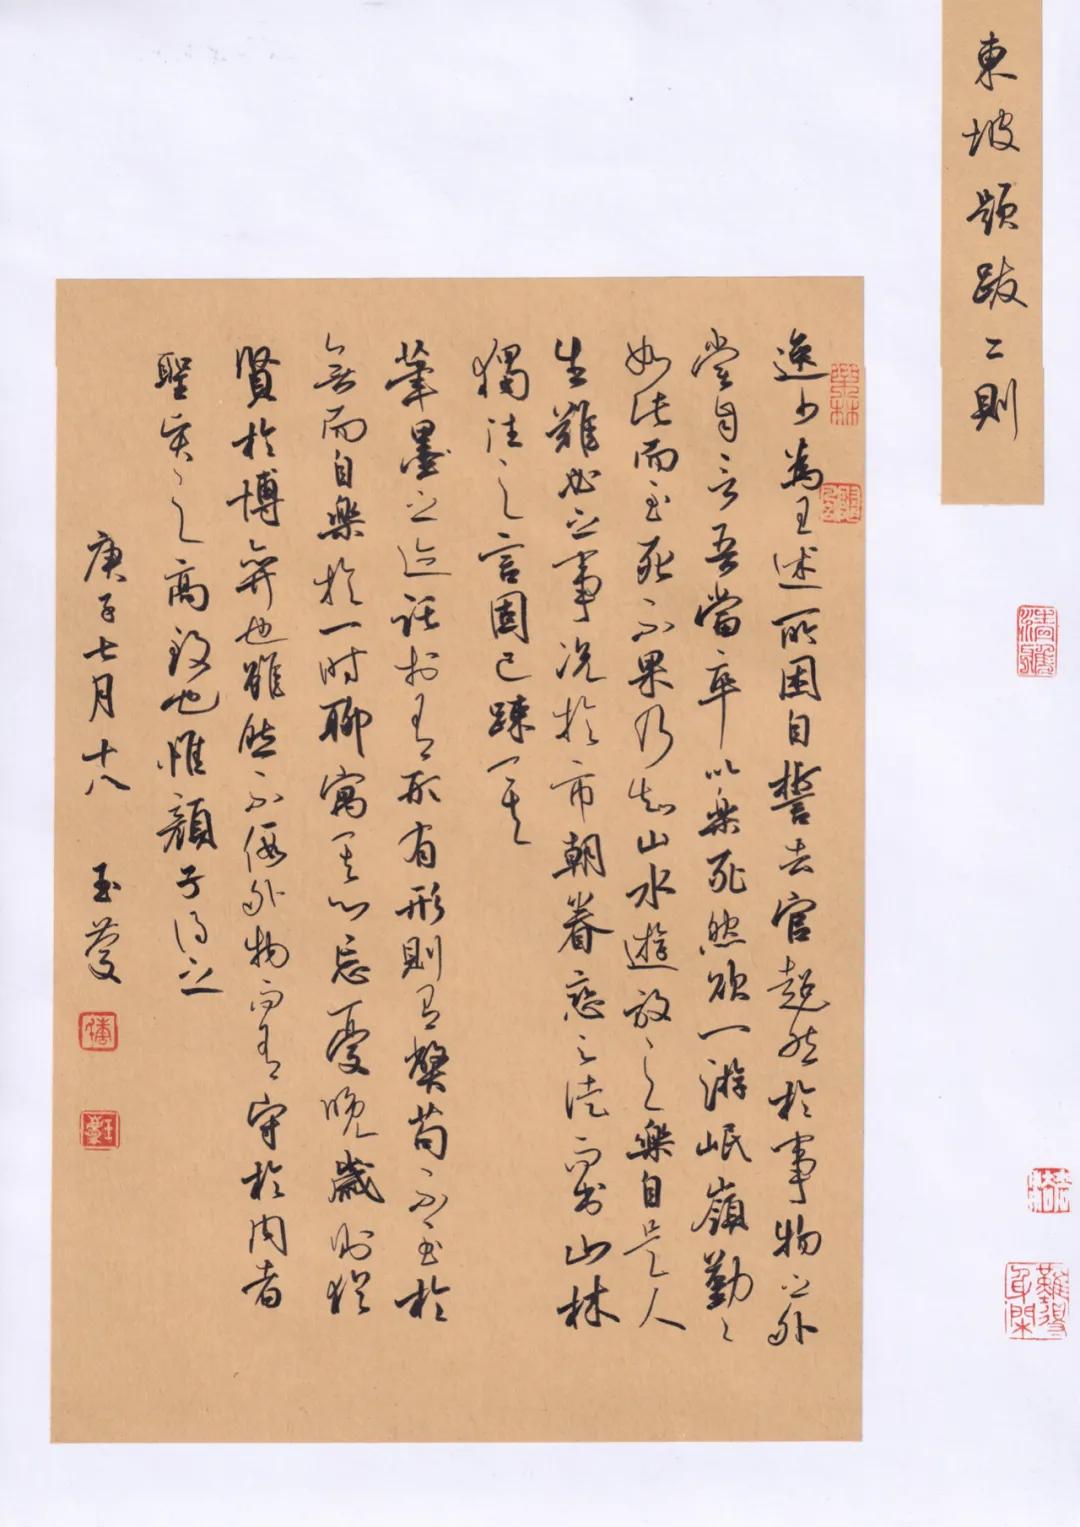 東坡題跋二則
逸少為王述所困自誓去官超然於事物之外
嘗自言吾當卒以樂死然欲一游岷嶺勤〻
如此而至死不果乃知山水遊放之樂自是人
生難必之事況於市朝眷戀之徒而出山林
獨往之言固已疎矣
筆墨之迹託於有形有形則有弊苟不至於
無而自樂於一時聊寓其心忘憂晚歲則猶
賢於博弈也雖然不假外物而有守於内者
聖賢之高致也惟顏子得之
庚子七月十八
難得
身閑